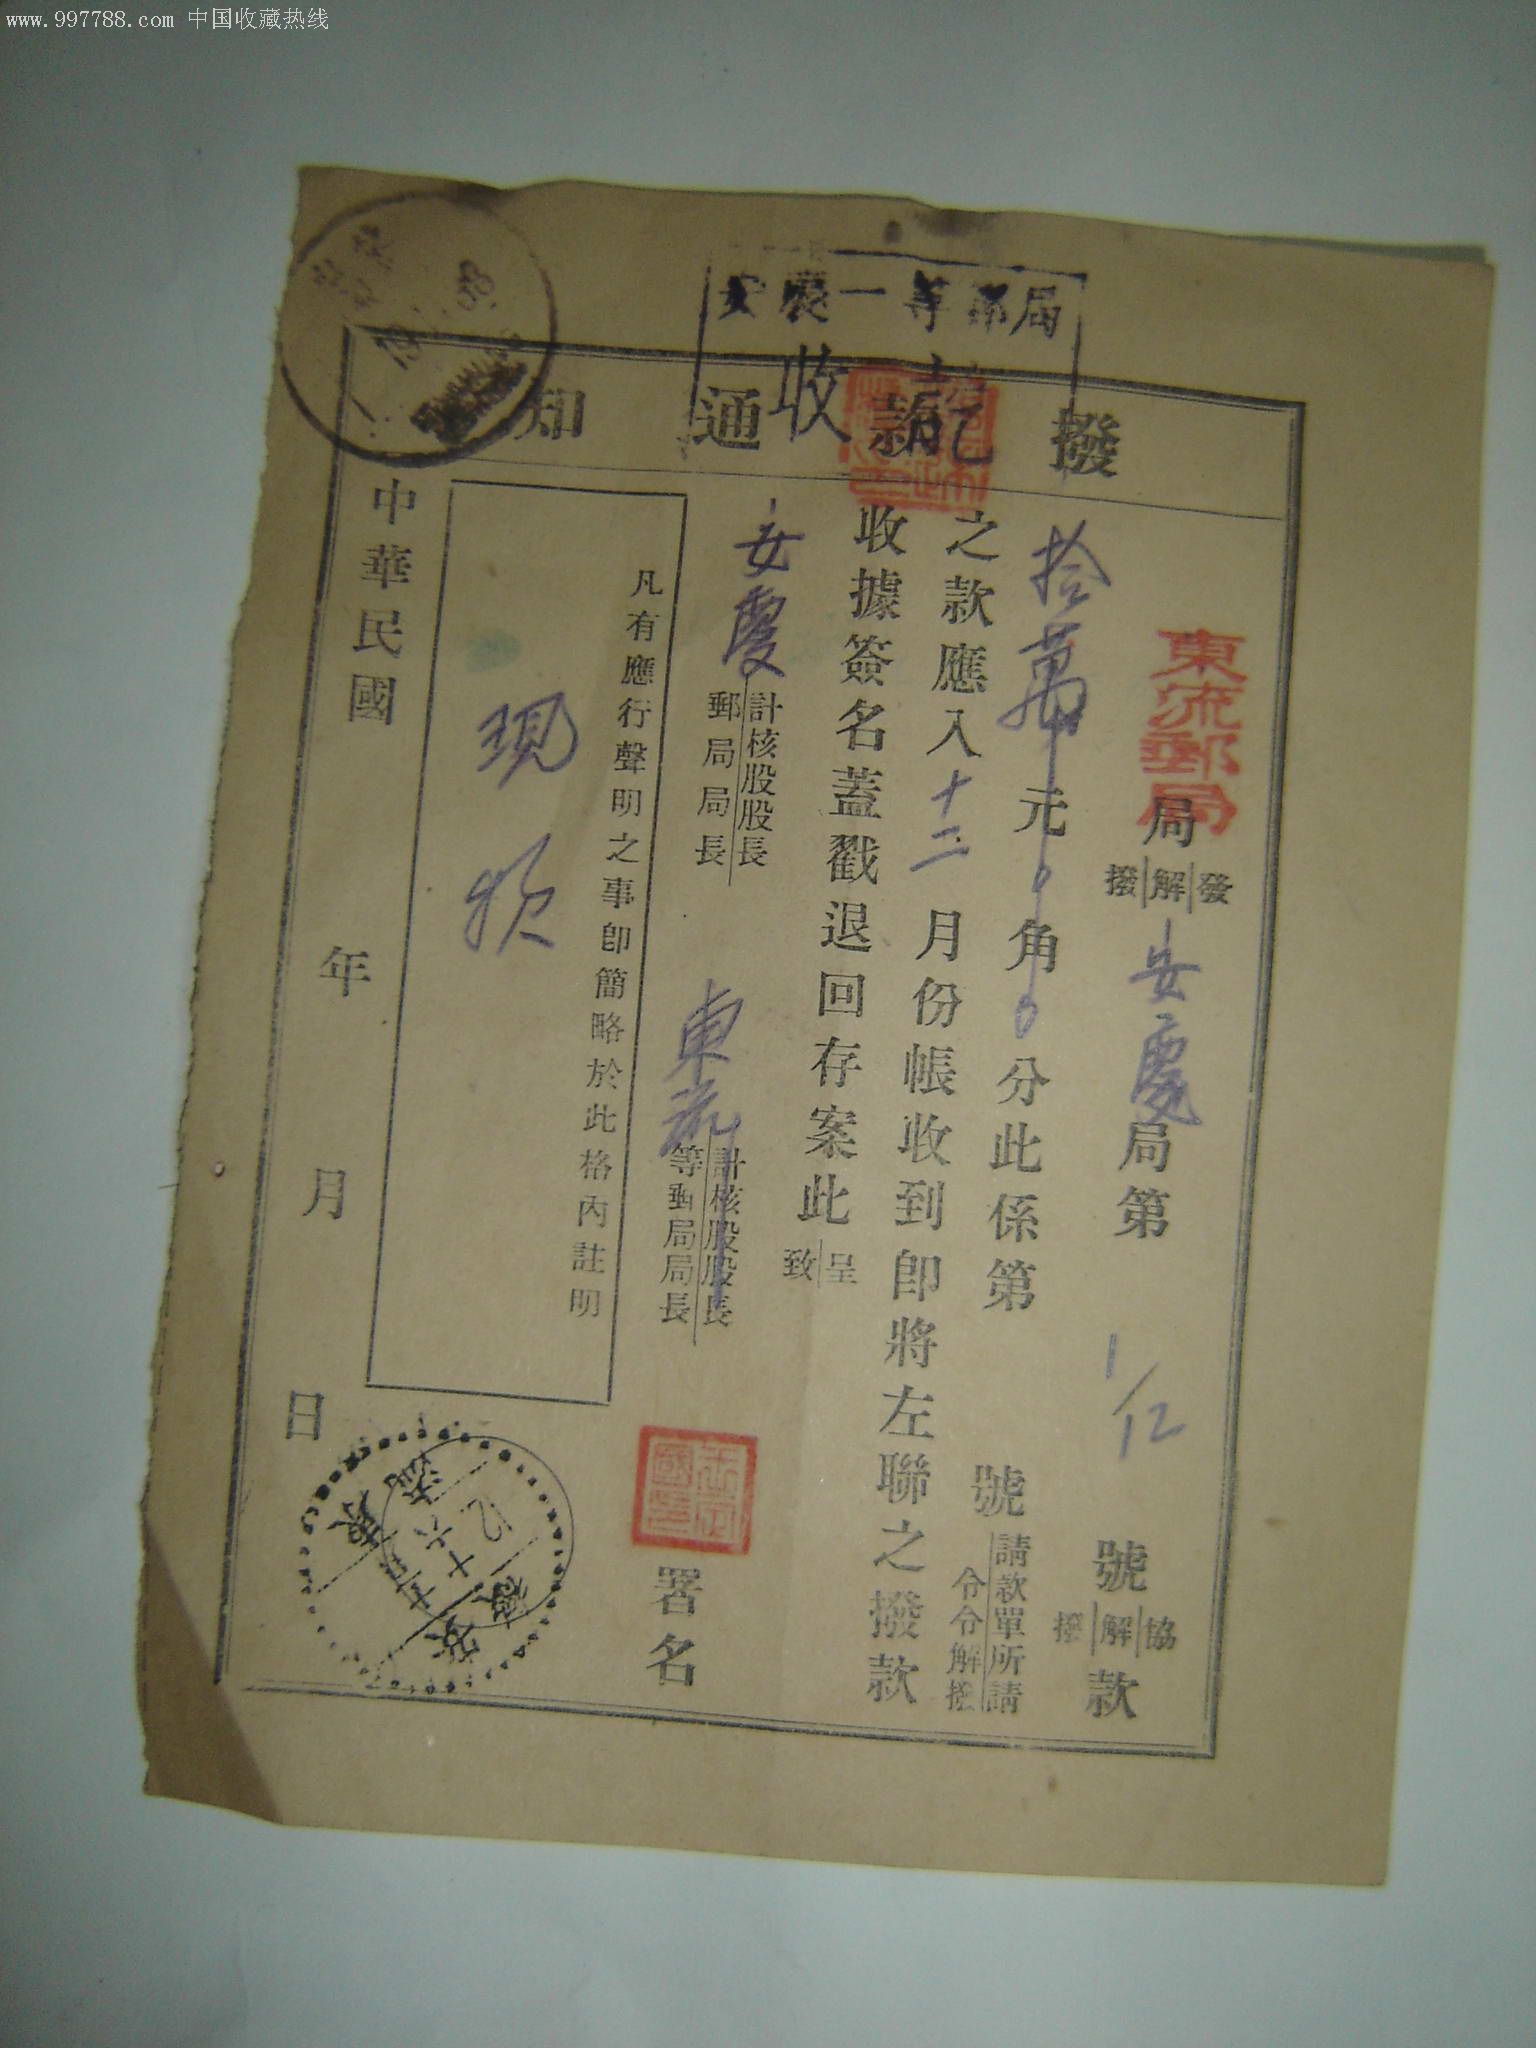 www.997788.com 中国收藏热线
安慶一等郵局
收訖
撥款通知
東流郵局
局發解撥安慶局第1/12號協解撥款
拾萬元0角0分此係第 號請款單所請令令解撥
之款應入十二月份帳收到即將左聯之撥款
收據簽名蓋戳退回存案此呈致
安慶計核股股長郵局局長
東流計核股股長等郵局局長 署名
凡有應行聲明之事即簡略於此格內註明
現款
中華民國 年 月 日